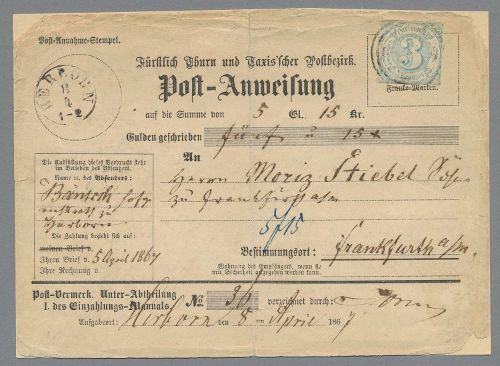 Post-Annahme-Stempel.
HERBORN
8
4
1-2
3
Franko-Marken.
Fürstlich Thurn und Taxis'scher Postbezirk.
Post-Anweisung
auf die Summe von 5 Gl. 15 Kr.
Gulden geschrieben fünf u 15 x
An
Herrn Moriz Stiebel Söhne
zu Frankfurt a/m
5/15
Bestimmungsort: Frankfurth a/m.
Wohnung des Empfängers, wenn sie
mit Sicherheit angegeben werden kann.
Die Ausfüllung dieses Vordrucks steht
im Belieben des Absenders.
Name ꝛc. des Absenders:
zu
Herborn
Die Zahlung bezieht sich auf:
meinen Brief v.
Ihren Brief v. 5 April 1867
Ihre Rechnung v.
Post-Vermerk. Unter-Abtheilung
I. des Einzahlungs-Manuals.
No. 36 verzeichnet durch:
Aufgabeort: Herborn den 8 ten April 1867